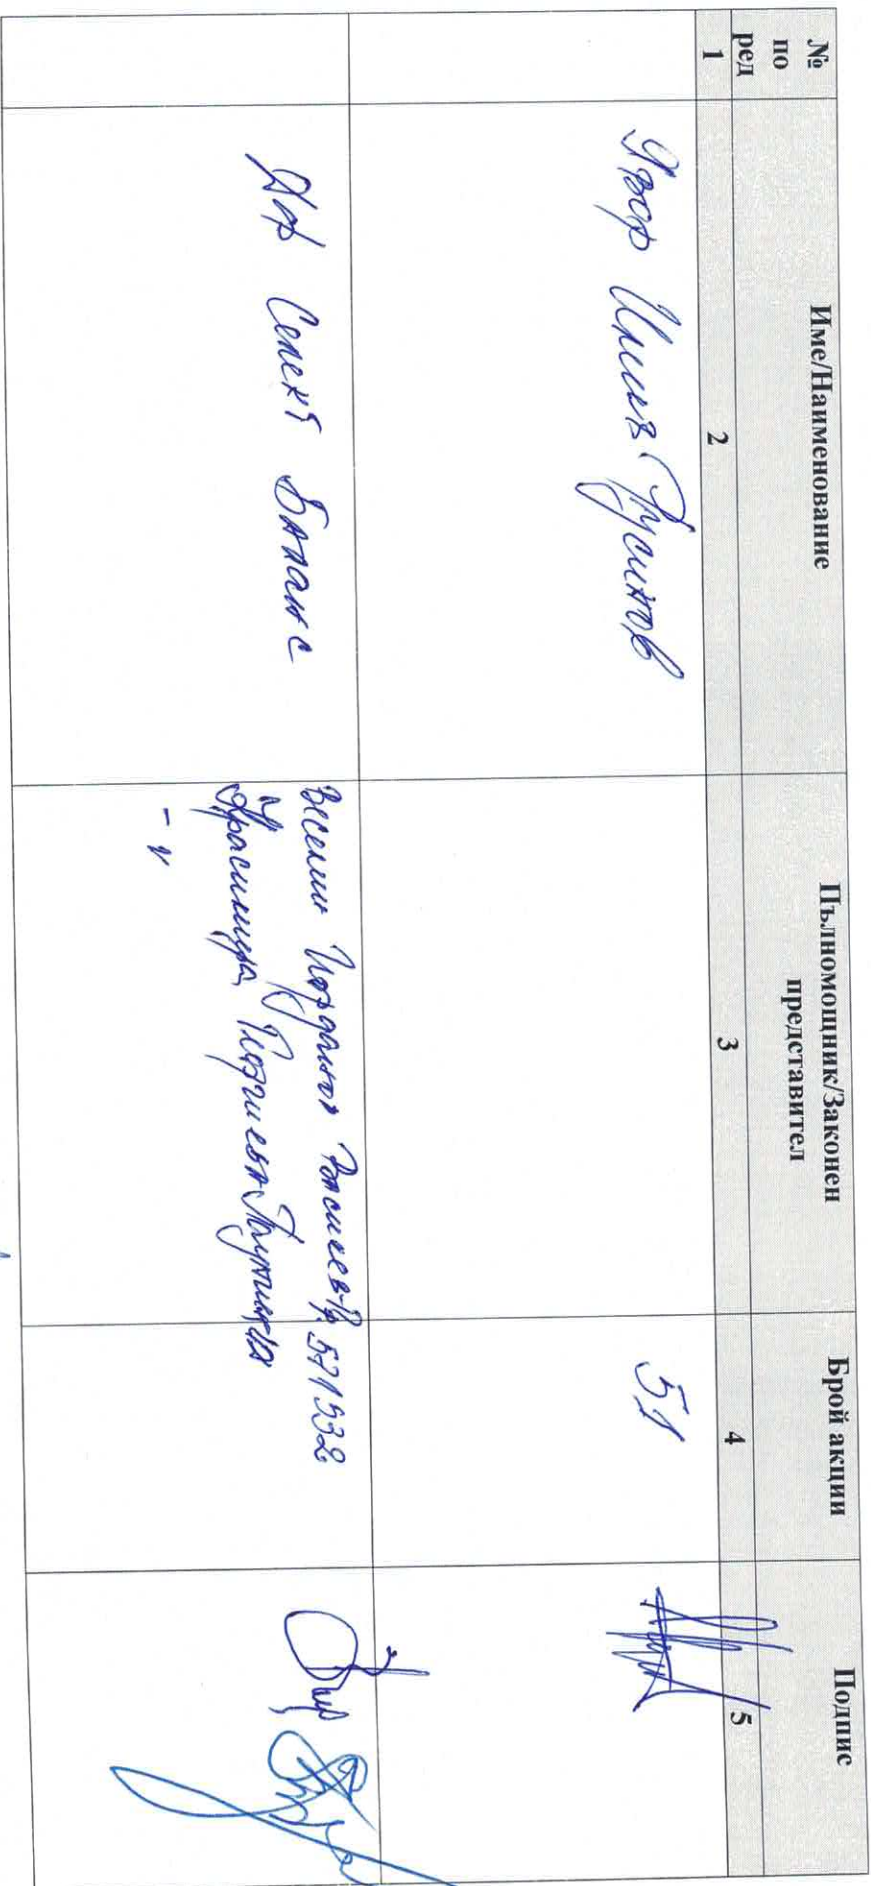 № по ред
Име/Наименование
Пълномощник/Законен представител
Брой акции
Подпис
1
2
3
4
5
Явор Илиев Русинов
51
ДФ Селект Баланс
Веселин Йорданов Василев
521932
и
Красимира